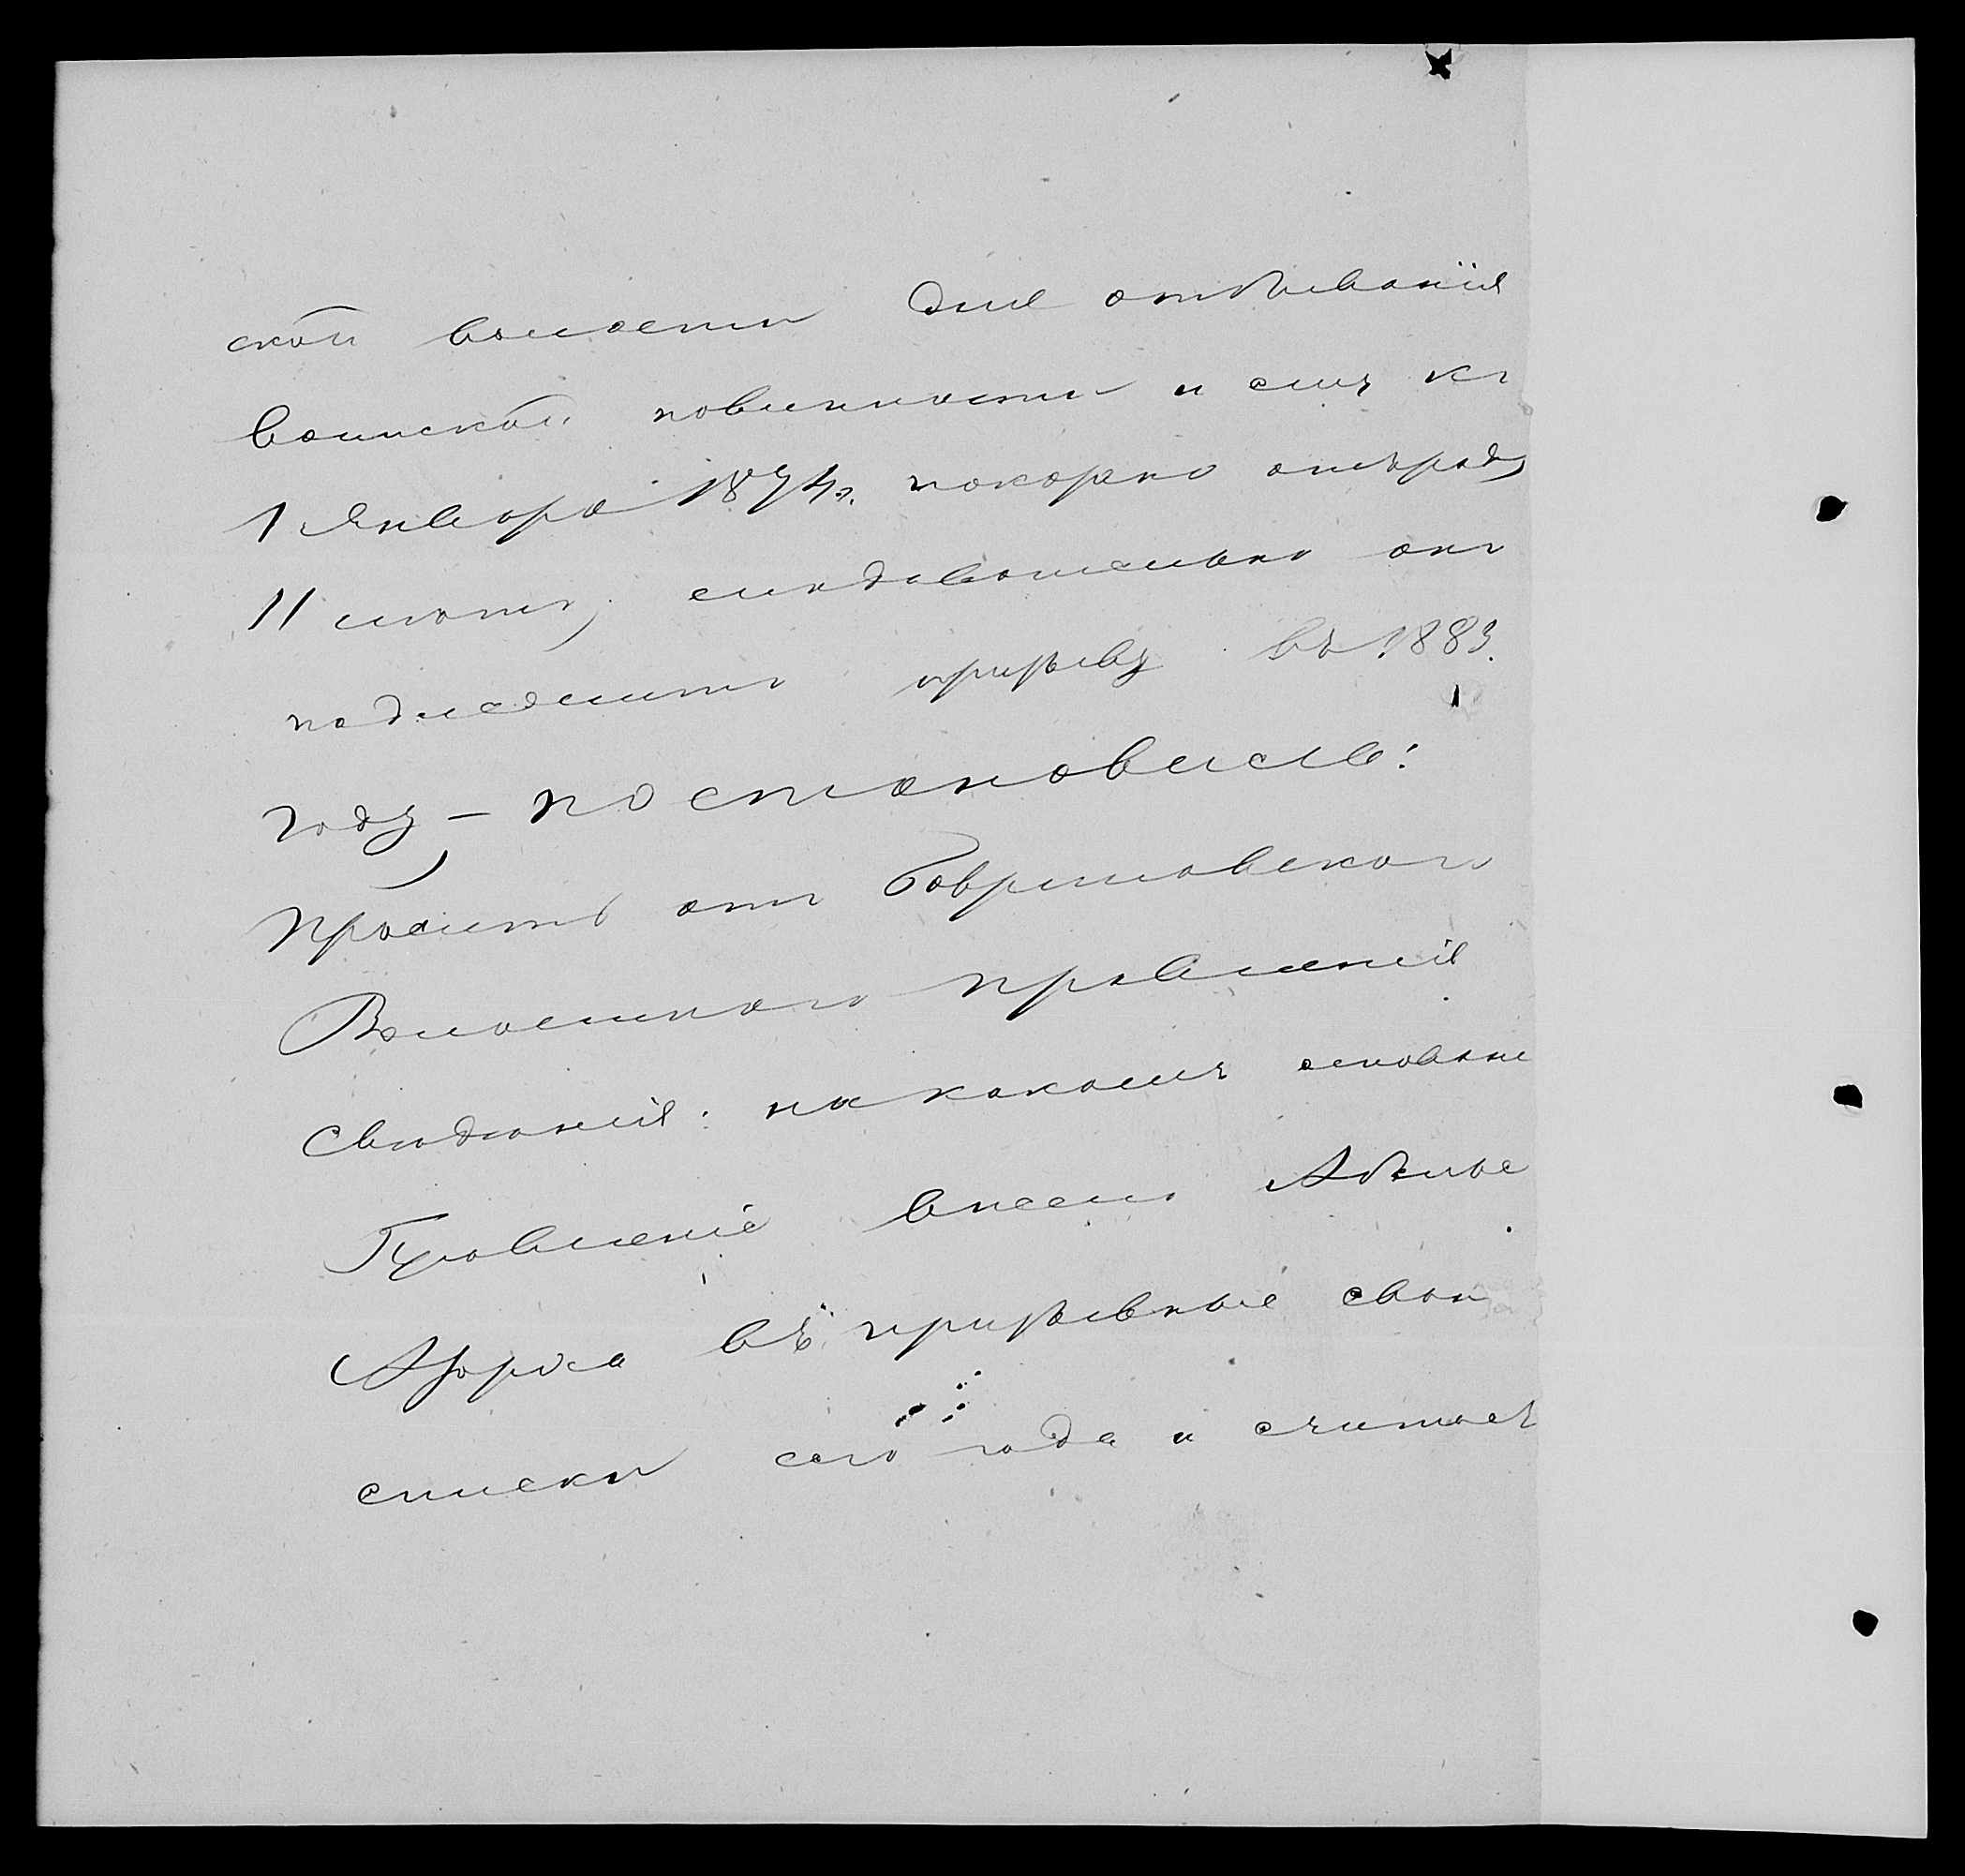 ской волости для отбыванія
воинской повинности и емъ къ
1 Января 1874г. показано отъ роду
11 лѣтъ, слѣдовательно онъ
подлежитъ призыву въ 1883.
году, – постановилъ:
просить отъ
Волостнаго правленія
свѣдѣнія: на какомъ основані
Правленіе внесло
въ призывные свои
списки сего года и считает